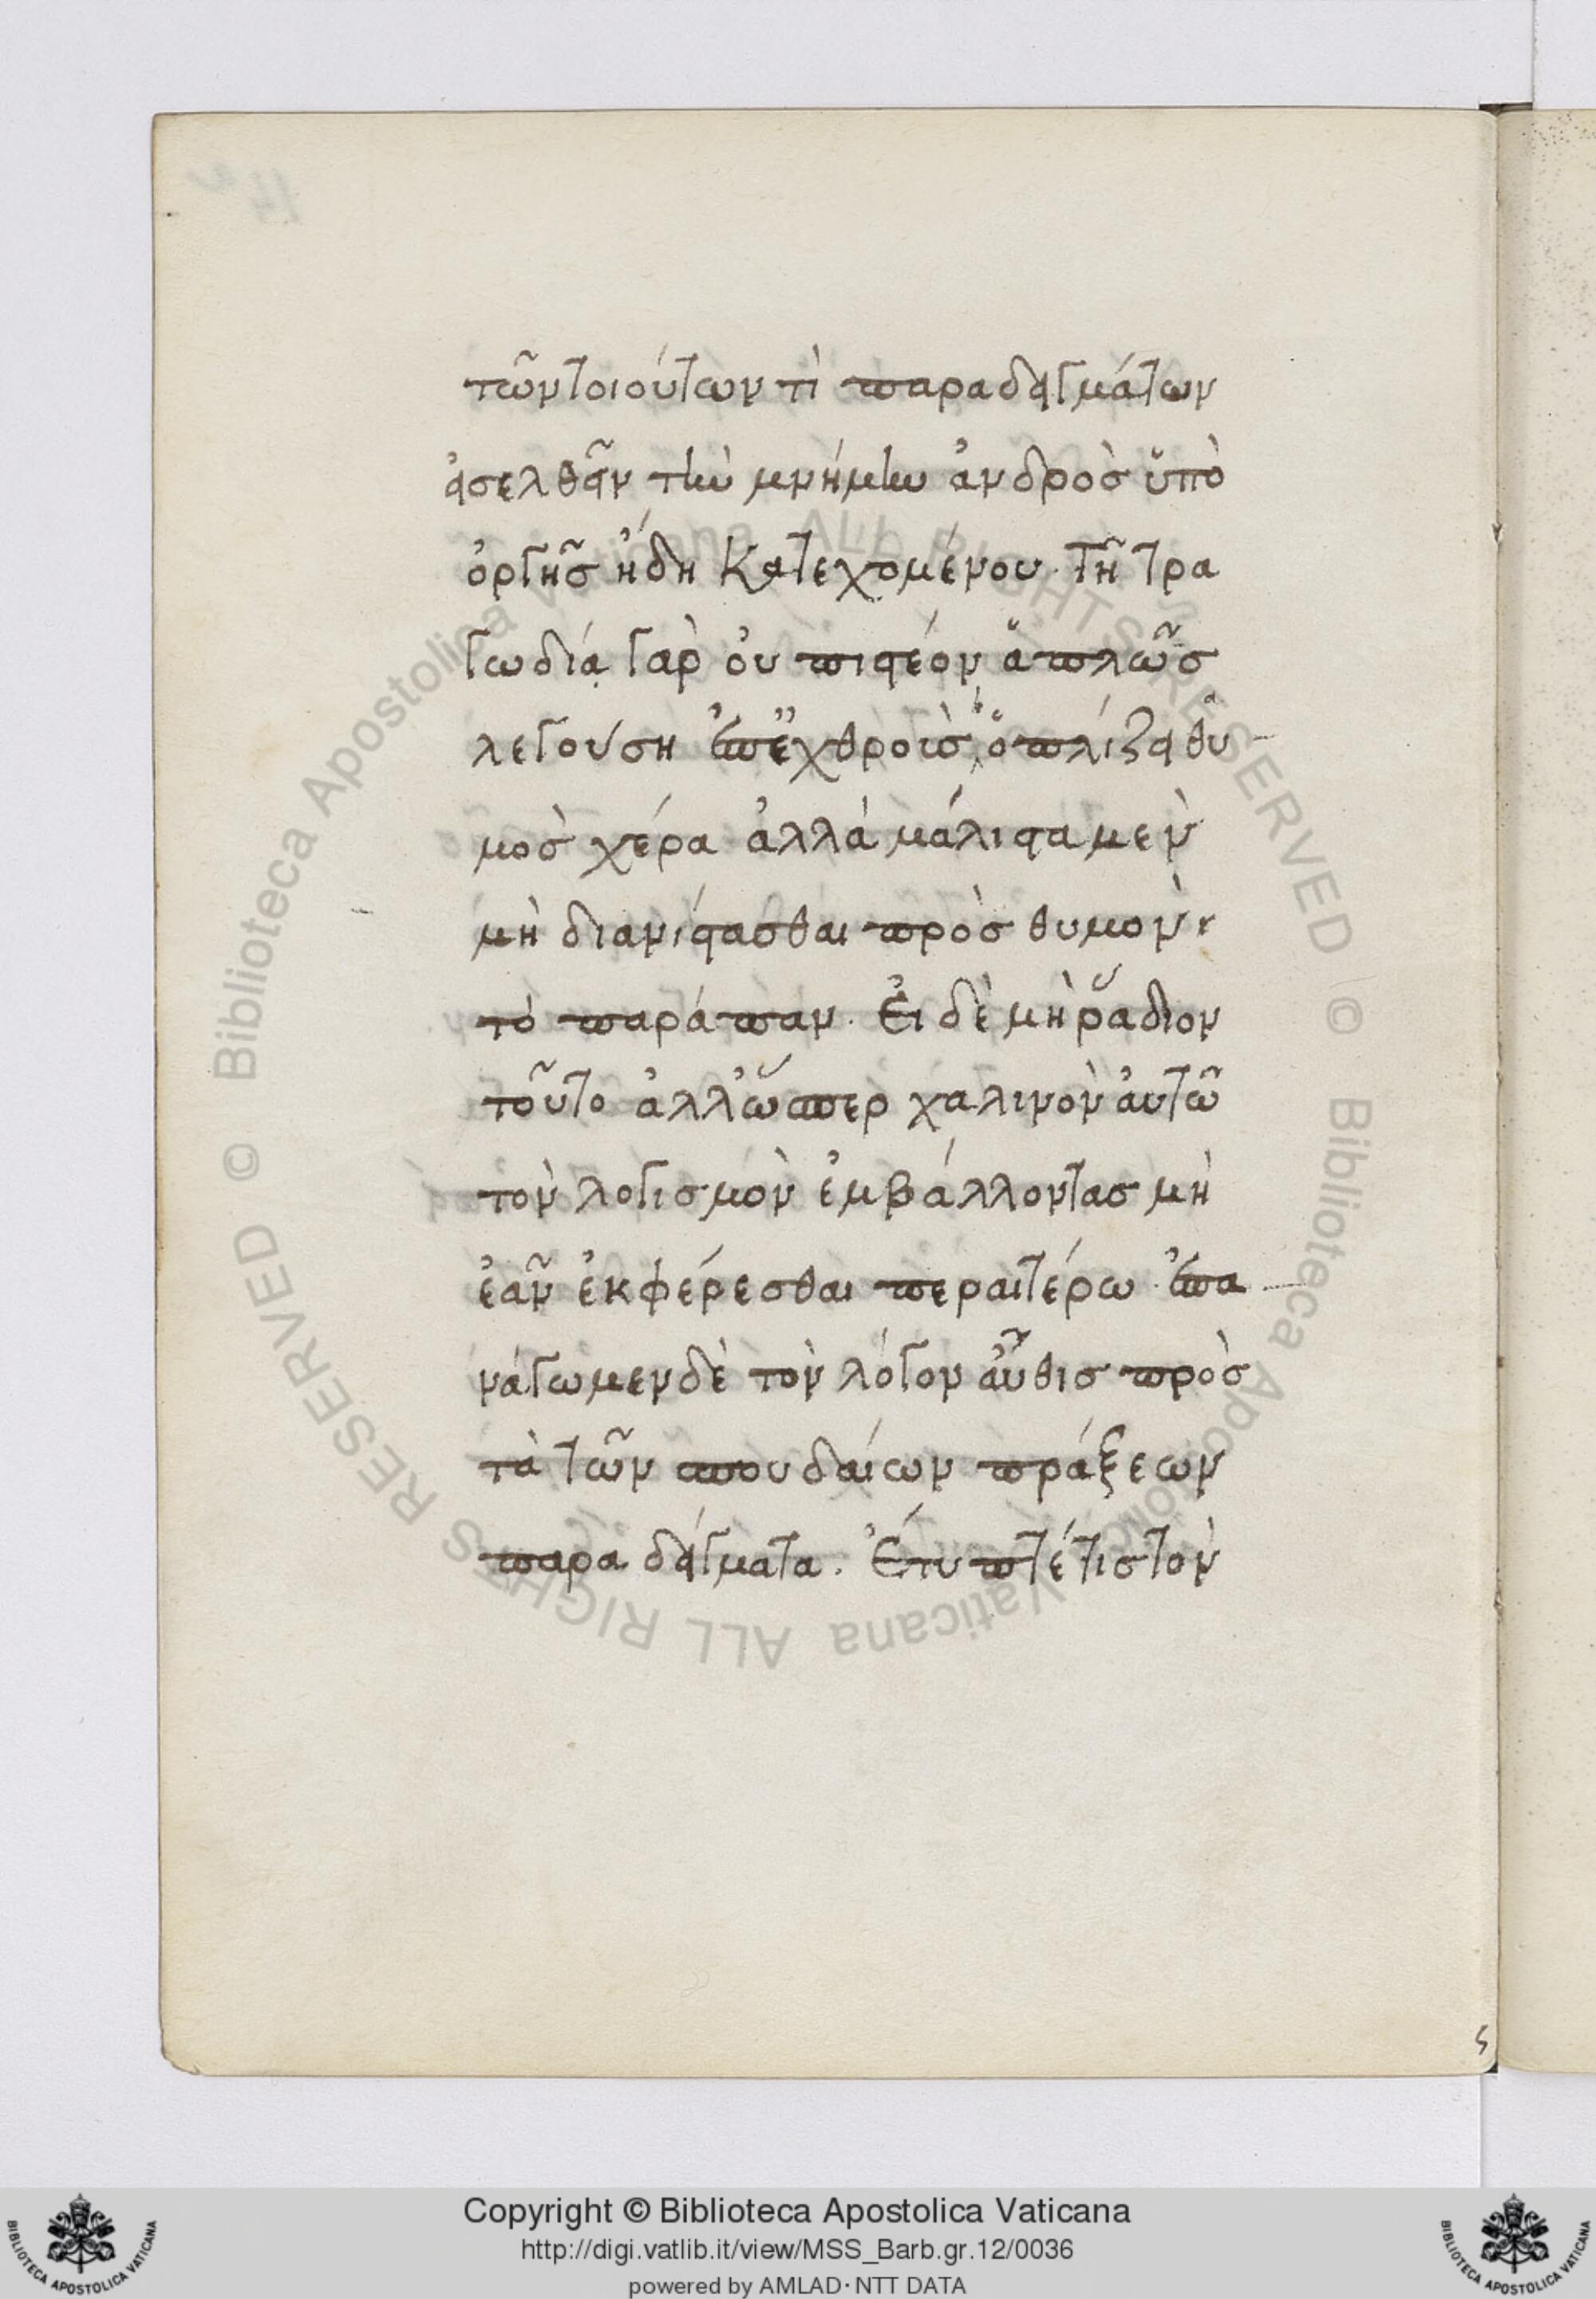 τῶν τοιούτων τὶ παραδειγμάτων
εἰσελθεῖν τὴν μνήμην ἀνδρὸς ὑπὸ
ὀργῆς ἤδη κατεχομένου. τῇ τρα
γωδία γὰρ οὐ πιστέον ἁπλῶς
λεγούση ἐπ ἐχθροῖς ὁπλίζει θυ-
μὸς χέρα ἀλλὰ μάλιστα μὲν
μὴ διανίστασθαι πρὸς θυμὸν
τὸ παράπαν. Εἰ δὲ μὴ ῥάδιον
τοῦτο ἀλλ ὥσπερ χαλινὸν αὐτῶ
τὸν λογισμὸν ἐμβάλλοντας μὴ
ἐᾶν ἐκφέρεσθαι περαιτέρω. ἐπα-
νάγωμεν δὲ τὸν λόγον αὖθις πρὸς
τὰ τῶν σπουδαίων πράξεων
παραδείγματα. Ἔτυπτέ τις τὸν
ς
Biblioteca Apostolica Vaticana ALL RIGHTS RESERVED ©
Biblioteca Apostolica Vaticana ALL RIGHTS RESERVED ©
Copyright © Biblioteca Apostolica Vaticana
http://digi.vatlib.it/view/MSS_Barb.gr.12/0036
powered by AMLAD·NTT DATA
BIBLIOTECA APOSTOLICA VATICANA
BIBLIOTECA APOSTOLICA VATICANA